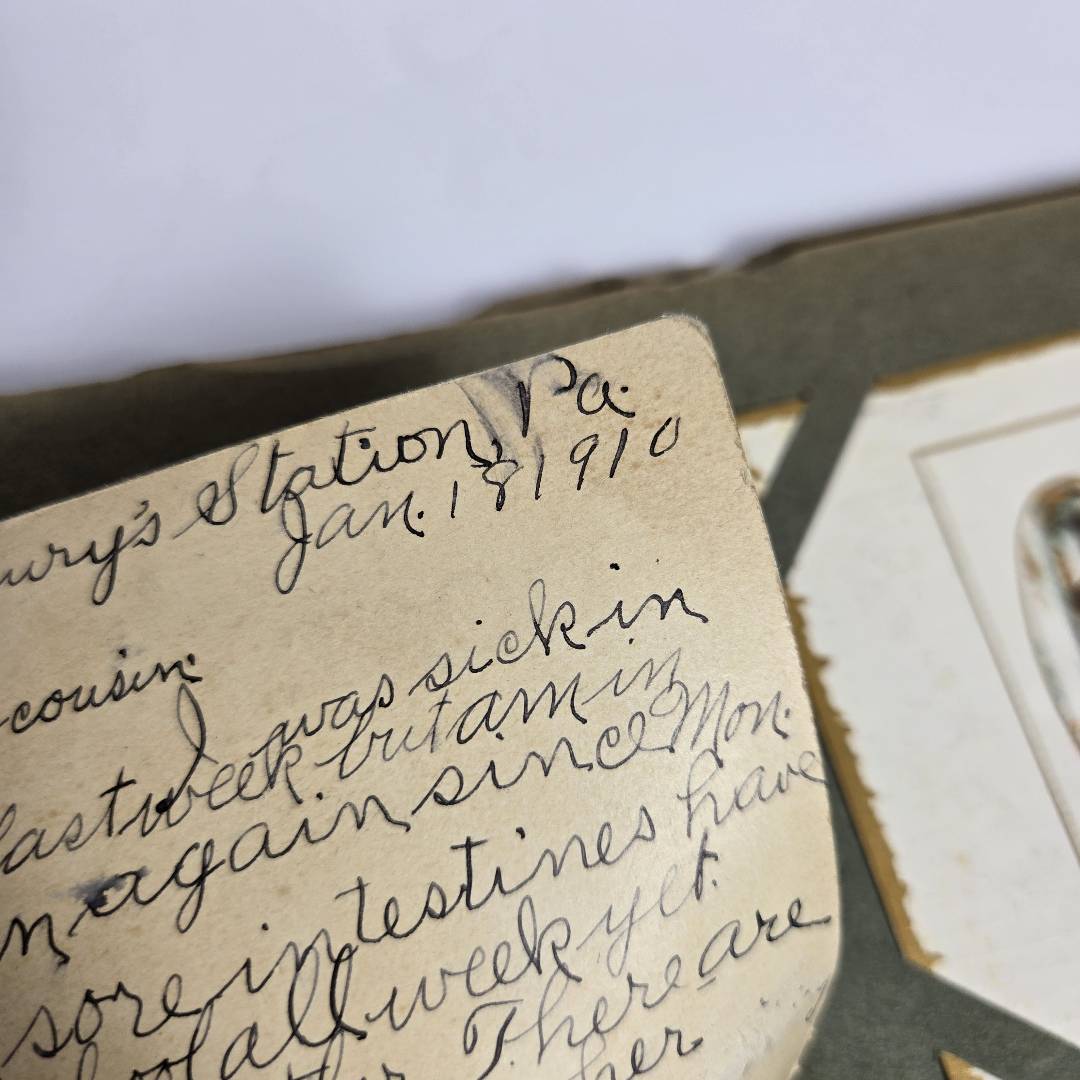 ury's Station, Pa.
Jan. 18 1910
cousin.
I was sick in
last week but am in
n again since Mon.
sore intestines have
ool all week yet.
There are
her